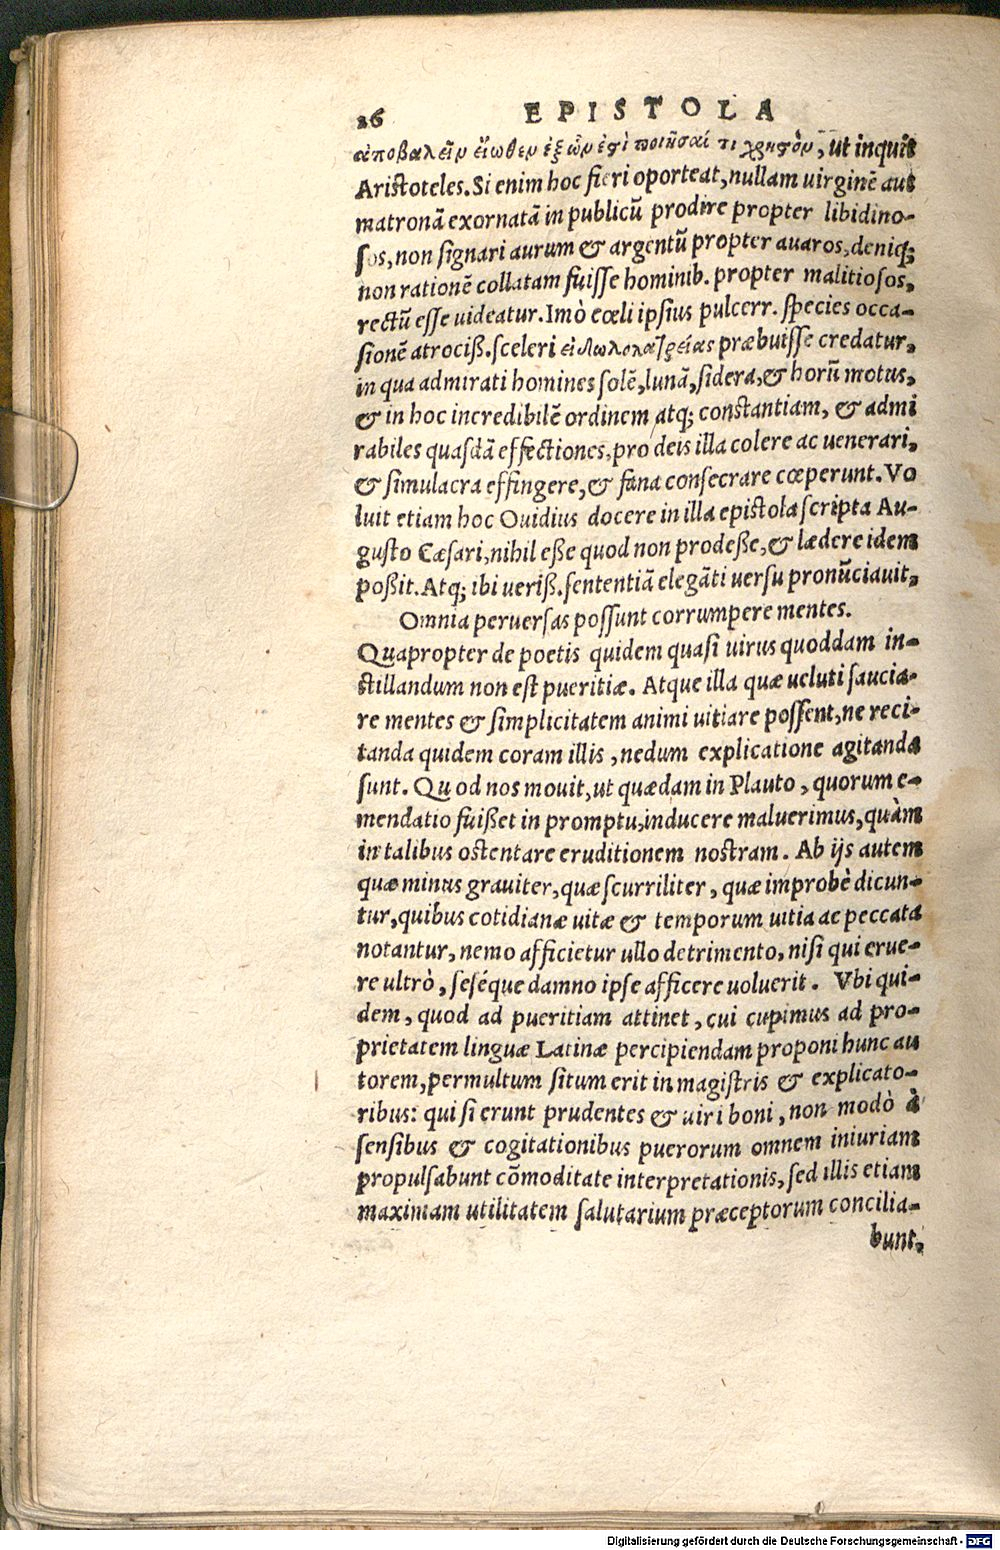 26 EPISTOLA
ἀποβαλεῖν εἴωθεν ἐξ ὧν ἐςὶ ποιῆσαί τι χρηςὸν, ut inquit
Aristoteles. Si enim hoc fieri oporteat, nullam uirginē aut
matronā exornatā in publicū prodire propter libidino-
sos, non signari aurum & argentū propter auaros, deniq;
non rationē collatam fuisse hominib. propter malitiosos,
rectū esse uideatur. Imò cœli ipsius pulcerr. species occa-
sionē atrociß. sceleri εἰδωλολατρείας præbuisse credatur,
in qua admirati homines solē, lunā, sidera, & horū motus,
& in hoc incredibilē ordinem atq; constantiam, & admi
rabiles quasdā effectiones, pro deis illa colere ac uenerari,
& simulacra effingere, & fana consecrare cœperunt. Vo
luit etiam hoc Ouidius docere in illa epistola scripta Au-
gusto Cæsari, nihil eße quod non prodeße, & lædere idem
poßit. Atq; ibi ueriß. sententiā elegāti uersu pronūciauit,
Omnia peruersas possunt corrumpere mentes.
Quapropter de poetis quidem quasi uirus quoddam in-
stillandum non est pueritiæ. Atque illa quæ ueluti saucia-
re mentes & simplicitatem animi uitiare possent, ne reci-
tanda quidem coram illis, nedum explicatione agitanda
sunt. Quod nos mouit, ut quædam in Plauto, quorum e-
mendatio fuißet in promptu, inducere maluerimus, quàm
in talibus ostentare eruditionem nostram. Ab ijs autem
quæ minus grauiter, quæ scurriliter, quæ improbè dicun-
tur, quibus cotidianæ uitæ & temporum uitia ac peccata
notantur, nemo afficietur ullo detrimento, nisi qui erue-
re ultrò, seséque damno ipse afficere uoluerit. Vbi qui-
dem, quod ad pueritiam attinet, cui cupimus ad pro-
prietatem linguæ Latinæ percipiendam proponi hunc au
torem, permultum situm erit in magistris & explicato-
ribus: qui si erunt prudentes & uiri boni, non modò à
sensibus & cogitationibus puerorum omnem iniuriam
propulsabunt cōmoditate interpretationis, sed illis etiam
maximam utilitatem salutarium præceptorum concilia-
bunt,
Digitalisierung gefördert durch die Deutsche Forschungsgemeinschaft - DFG